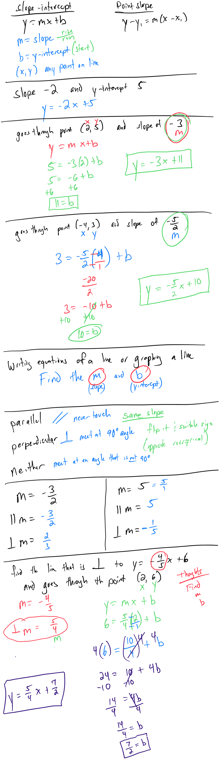 slope-intercept
Point slope
y = mx + b
y - y₁ = m(x - x₁)
m = slope rise/run
b = y-intercept (start)
(x, y) any point on line
slope -2 and y-intercept 5
y = -2x + 5
x y
goes through point (2, 5) and slope of -3
m
y = mx + b
5 = -3(2) + b
5 = -6 + b
+6 +6
11 = b
y = -3x + 11
goes through point (-4, 3) and slope of -5/2
x y
m
3 = -5/2 (-4/1) + b
-20/2
3 = -10 + b
+10 +10
10 = b
y = -5/2 x + 10
Writing equations of a line or graphing a line
Find the m and b
(slope) (y-intercept)
parallel // never touch same slope
perpendicular ⊥ meet at 90° angle flip it & switch sign
(opposite reciprocal)
neither meet at an angle that is not 90°
m = -3/2
|| m = -3/2
⊥ m = 2/3
m = 5 = 5/1
|| m = 5
⊥ m = -1/5
find the line that is ⊥ to y = -4/5 x + 6
and goes through the point (2, 6)
x y
Thoughts
Find
m
b
m = -4/5
⊥ m = 5/4
m
y = mx + b
6 = 5/4 (2/1) + b
4(6) = (10/4) 4 + 4b
24 = 10 + 4b
-10 -10
14/4 = 4b/4
14/4 = b
7/2 = b
y = 5/4 x + 7/2